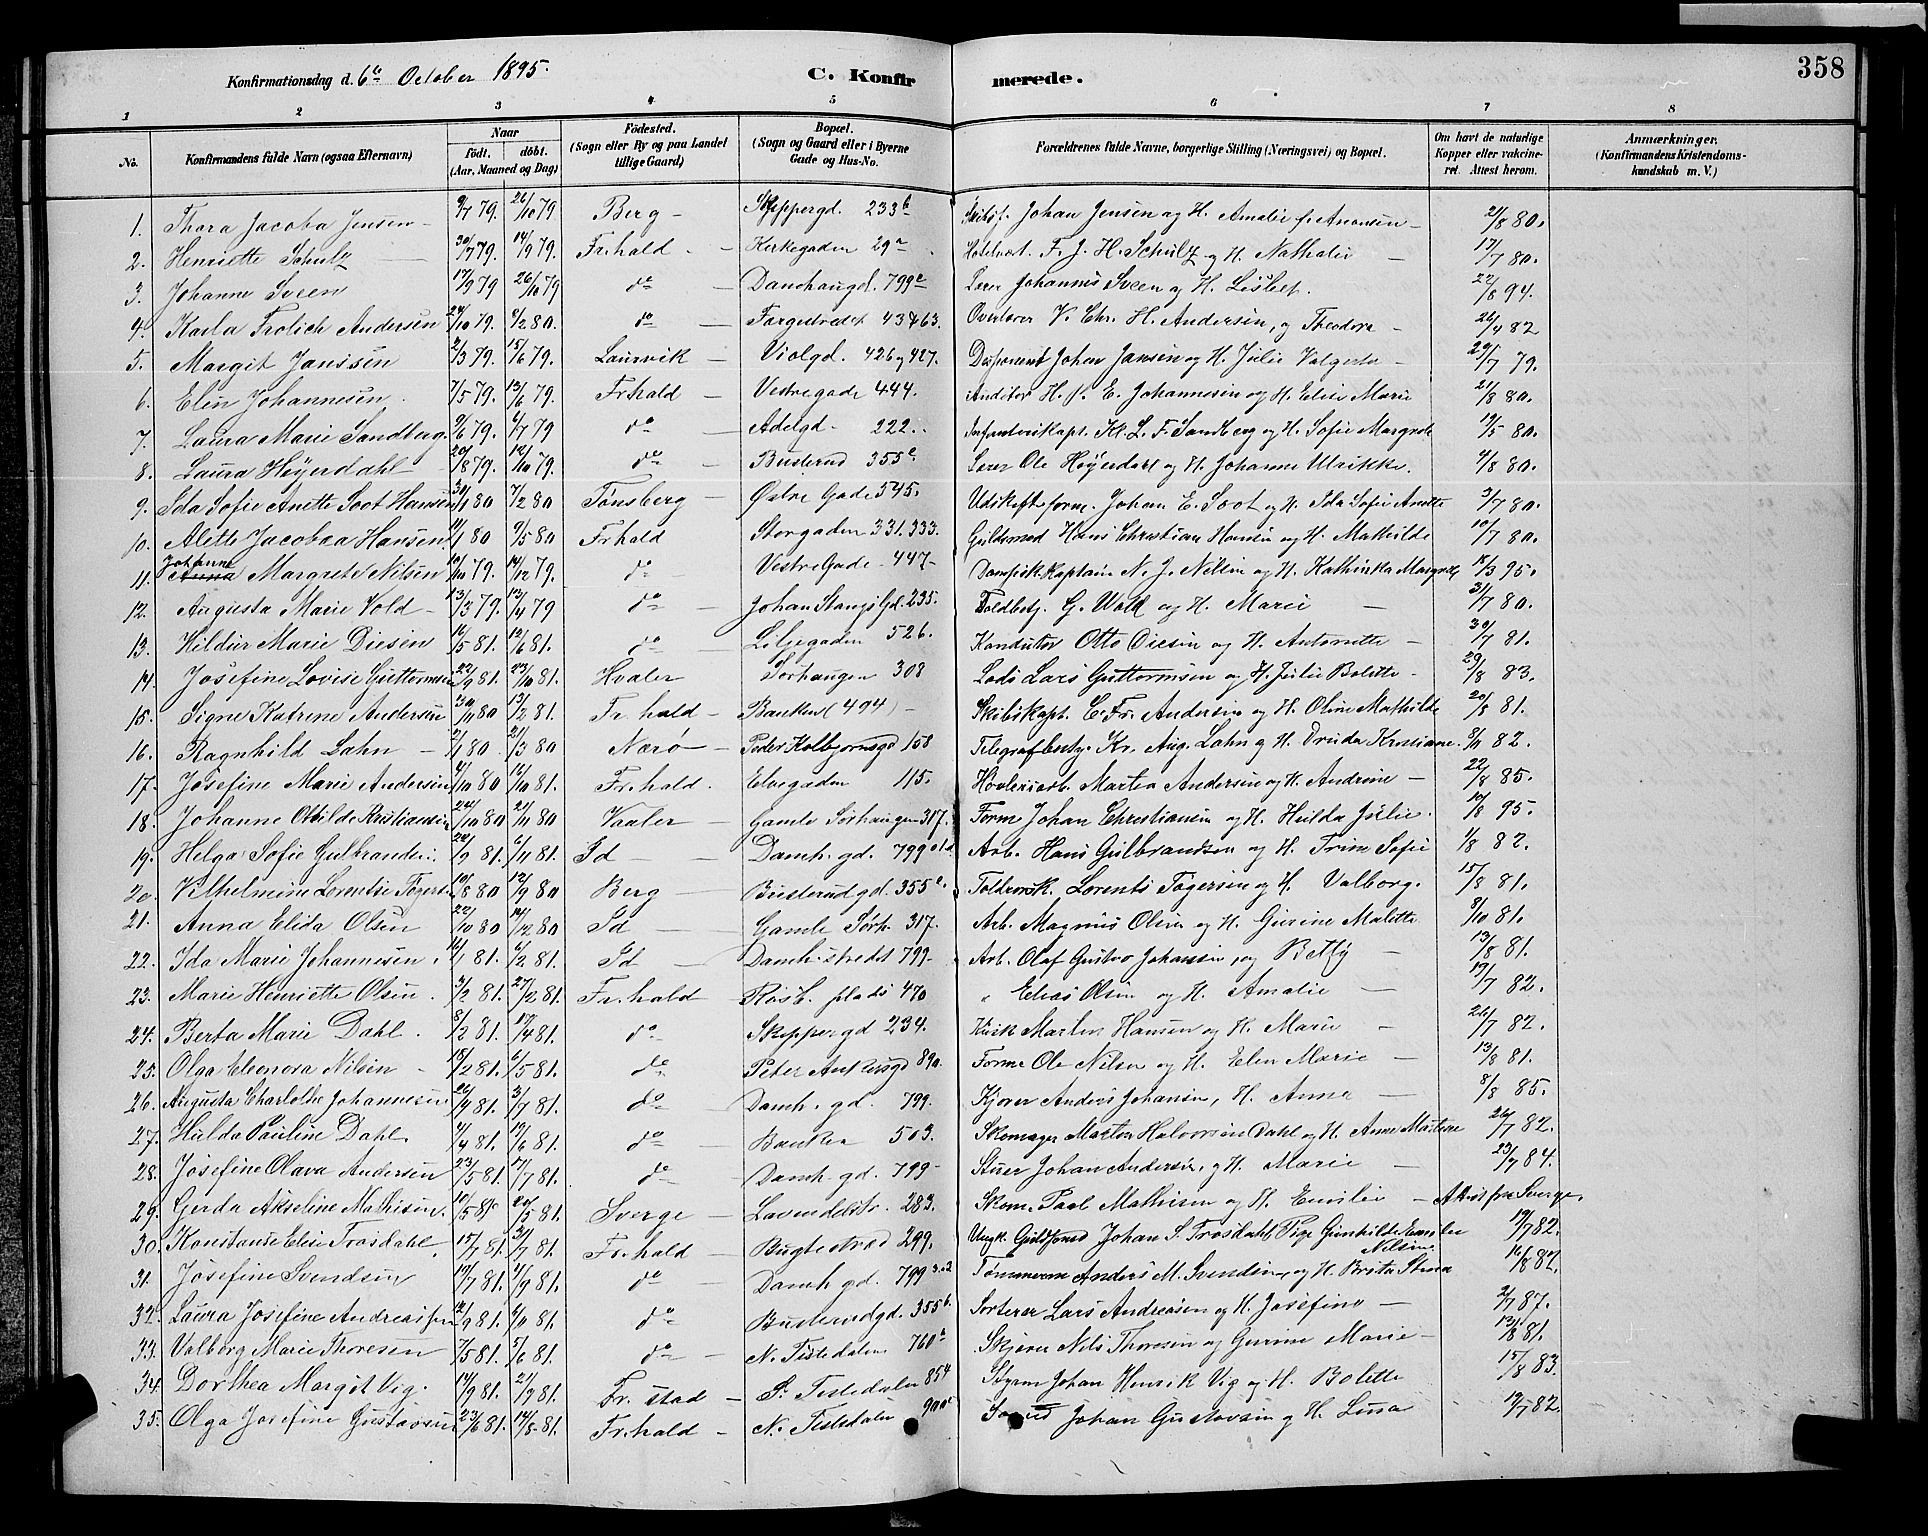 358
Konfirmationsdag d. 6te October 1895. C. Konfirmerede.
1 2 3 4 5 6 7 8
No. Konfirmandens fulde Navn (ogsaa Efternavn) Naar Födt. döbt. (Aar, Maaned og Dag) Födested. (Sogn eller By og paa Landet tillige Gaard) Bopæl. (Sogn og Gaard eller i Byerne Gade og Hus-No. Forældrenes fulde Navne, borgerlige Stilling (Næringsvei) og Bopæl. Om havt de naturlige Kopper eller vakcineret. Attest herom. Anmærkninger. (Konfirmandens Kristendomskundskab m. V.)
1. Thora Jacoba Jensen 9/7 79. 26/10 79 Berg Skippergd. 233b Johan Jensen og H. Amalie f. Anonsen 2/8 80.
2. Henriette Schulz 30/7 79. 14/9 79. Fr.hald Kirkegaden 29a F. J. H. Schultz og H. Nathalie 17/7 80.
3. Johanne Sveen 17/9 79 26/10 79 do Damhaugd. 799c Lærer Johannes Sveen og H. Lisbet. 22/8 94.
4. Karla Frolich Andersen 24/10 79. 6/2 80. do Fargestrædet 43 & 63. Overlærer V. Chr. H. Andersen, og Theodora 26/4 82
5. Margit Janssen 2/3 79. 15/6 79. Laurvik Violgd. 426 og 427. Disponent Johan Jansen og H. Julie Valgerda 29/7 79.
6. Elen Johannesen 7/5 79. 13/6 79. Fr.hald Vestregade 444. Auditør H. E. Johannesen og H. Elise Marie 21/8 80.
7. Laura Marie Sandberg. 9/6 79. 6/7 79 do Adelgd 222. Infanterikapt. Kl. L. F. Sandberg og H. Sofie Margrete 19/5 80.
8. Laura Høyerdahl 20/8 79. 12/10 79. do Busterud 355a Lærer Ole Høyerdahl og H. Johanne Ulrikke. 4/8 80.
9. Ida Sofie Anette Soot Hansen 30/1 80 7/2 80 Tønsberg Østre Gade 545. Udskiftform. Johan E. Soot og H. Ida Sofie Anette 3/7 80.
10. Alette Jacobea Hansen. 11/1 80 9/5 80 Fr.hald Storgaden 331. 333. Guldsmed Hans Christian Hansen og H. Mathilde 10/7 80.
11. Johanne Margrete Nilsen 10/10 79. 14/12 79. do Vestre Gade 447 Dampsk.kaptain N. J. Nilsen og H. Kathinka Margrete 18/3 95.
12. Augusta Marie Vold 13/3 79. 13/4 79 do Johan Stangs Gd. 235. Toldbetj. G. Wold og H. Marie 31/7 80.
13. Hildur Marie Diesen 16/5 81. 12/6 81. do Liljegaden 526. Konduktør Otto Diesen og H. Antonette 30/7 81.
14. Josefine Lovise Guttormsen 22/9 81. 23/10 81. Hvaler Sørhaugen 308 Lods Lars Guttormsen og H. Julie Bolette 29/8 83.
15. Signe Katrine Andersen 30/11 80 13/2 81. Fr.hald Banken (494) Skibskapt. C. Fr. Andersen og H. Oline Mathilde 20/8 81.
16. Ragnhild Lahn 2/1 80 21/3 80 Nærø Peder Kolbjørnsgd 158 Telegrafbesty. Kr. Aug. Lahn g H. Druda Kristiane. 9/11 82.
17. Josefine Marie Andersen 4/10 80 16/10 81. Fr.hald. Elvegaden 115. Høvleriarb. Martin Andersen og H. Andrine 22/8 85.
18. Johanne Otilde Kristiansen 24/10 80 21/11 80 Vaaler Gamle Sørhaugen 317. Form Johan Christiansen og H. Hulda Julie. 10/8 95.
19. Helga Sofie Gulbrandsen 22/9 81. 6/11 81. Id Damh. gd. 799 Arb. Hans Gulbrandsen og H. Trine Sofie 1/8 82.
20. Vilhelmine Lorentse Tøgersen 10/8 80 12/9 80 Berg Busterudgd. 355a. Toldrorsk. Lorents Tøgersen og H. Valborg. 15/8 81.
21. Anna Elida Olsen 22/10 80 14/12 80 Id Gamle Sørh. 317. Arb. Magnus Olsen og H. Gurine Malette 8/10 81.
22. Ida Marie Johannesen. 16/1 81. 6/2 81. Id Damh. strædet 799. Arb. Olaf Gustav Johansen, og Betty 13/8 81.
23. Marie Henriette Olsen. 3/2 81. 27/2 81. Fr.hald Røsb. plads 470 " Elias Olsen og H. Amalie 19/7 82.
24. Berta Marie Dahl. 8/2 81. 17/4 81. do Skippergd 234. Kusk Martin Hansen og H. Marie 26/7 82.
25. Olga Eleonora Nilsen 18/2 81. 6/5 81. do Peter Ankersgd 890. Forme Ole Nilsen og H. Elen Marie 13/8 81.
26. Augusta Charlotte Johannesen. 26/4 81. 3/7 81. do Damh. gd. 799. Kjører Anders Johansen, H. Anne 8/8 85.
27. Hulda Pauline Dahl. 4/4 81. 19/6 81. do Banken 503. Skomager Martin Halvorsen Dahl og H. Anne Mastine 26/7 82.
28. Josefine Olava Andersen 23/5 81. 17/7 81. do Damh. gd. 799 Stuer Johan Andersen, og H. Marie 23/7 84.
29. Gerda Akseline Mathisen. 10/5 81 20/5 81. Sverge Lavendelstr. 283. Skom. Paal Mathisen og H. Emilie Attest fra Sverge.
30. Konstanse Elise Trosdahl. 15/7 81. 31/7 81. Fr.hald Bugtestræd 299. Ungk. Guldsmed Johan S. Trosdahl, Pige Gunhilde Emilie Nilsen 19/7 82.
31. Josefine Svendsen 19/7 81. 4/9 81. do Damh. gd. 799 Tømmerm Anders M. Svendsen, og H. Brita Stina 16/8 82.
32. Laura Josefine Andreassen 12/9 81. 6/10 81. do Busterudgd. 355b. Sorterer Lars Andreasen og H. Josefine 2/7 87.
33. Valborg Marie Thoresen 7/5 81. 5/6 81. do N. Tistedalen 760a Skjærer Nils Thoresen og Gurine Marie 13/8 81.
34. Dorthea Margit Vig. 14/9 81. 21/9 81. Fr.stad S. Tistedalen 854 Styrm Johan Henrik Vig og H. Bolette 15/8 83.
35. Olga Josefine Gustavsen 23/6 81. 14/8 81. Fr.hald N. Tistedalen 900c Johan Gustavsen g H. Lina 19/7 82.